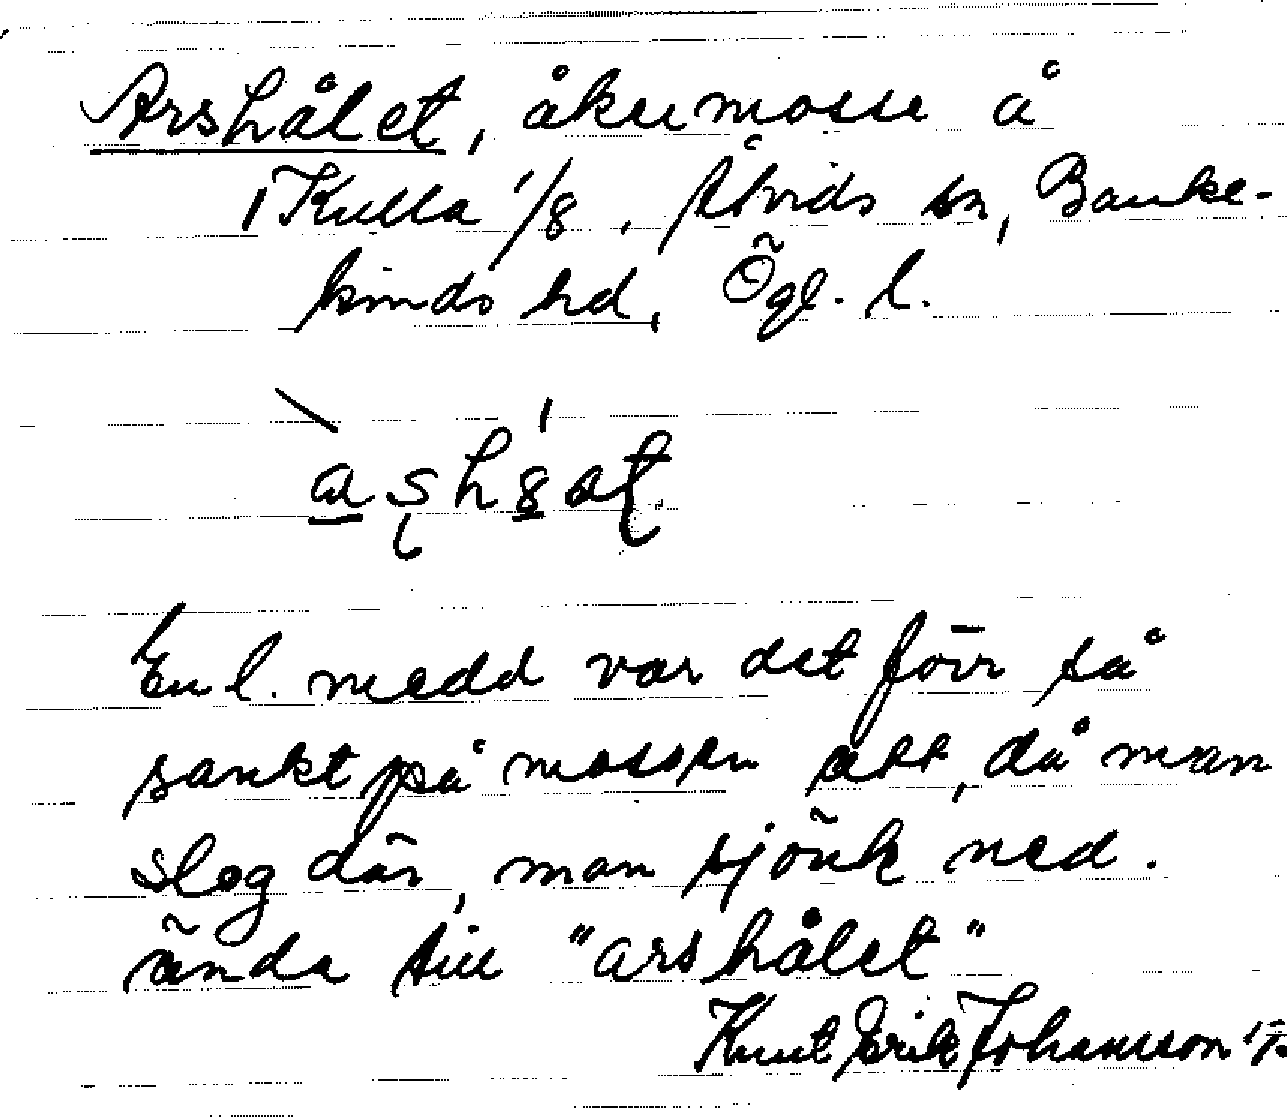 Arshålet, åkermosse å
Kulla 1/8, Åtvids sn, Banke-
kinds hd, Ögl. l.
En l. medd var det förr så
sankt på mossen att, då man
slog där, man sjönk ned.
ända till "arshålet"
Knut Erik Johansson